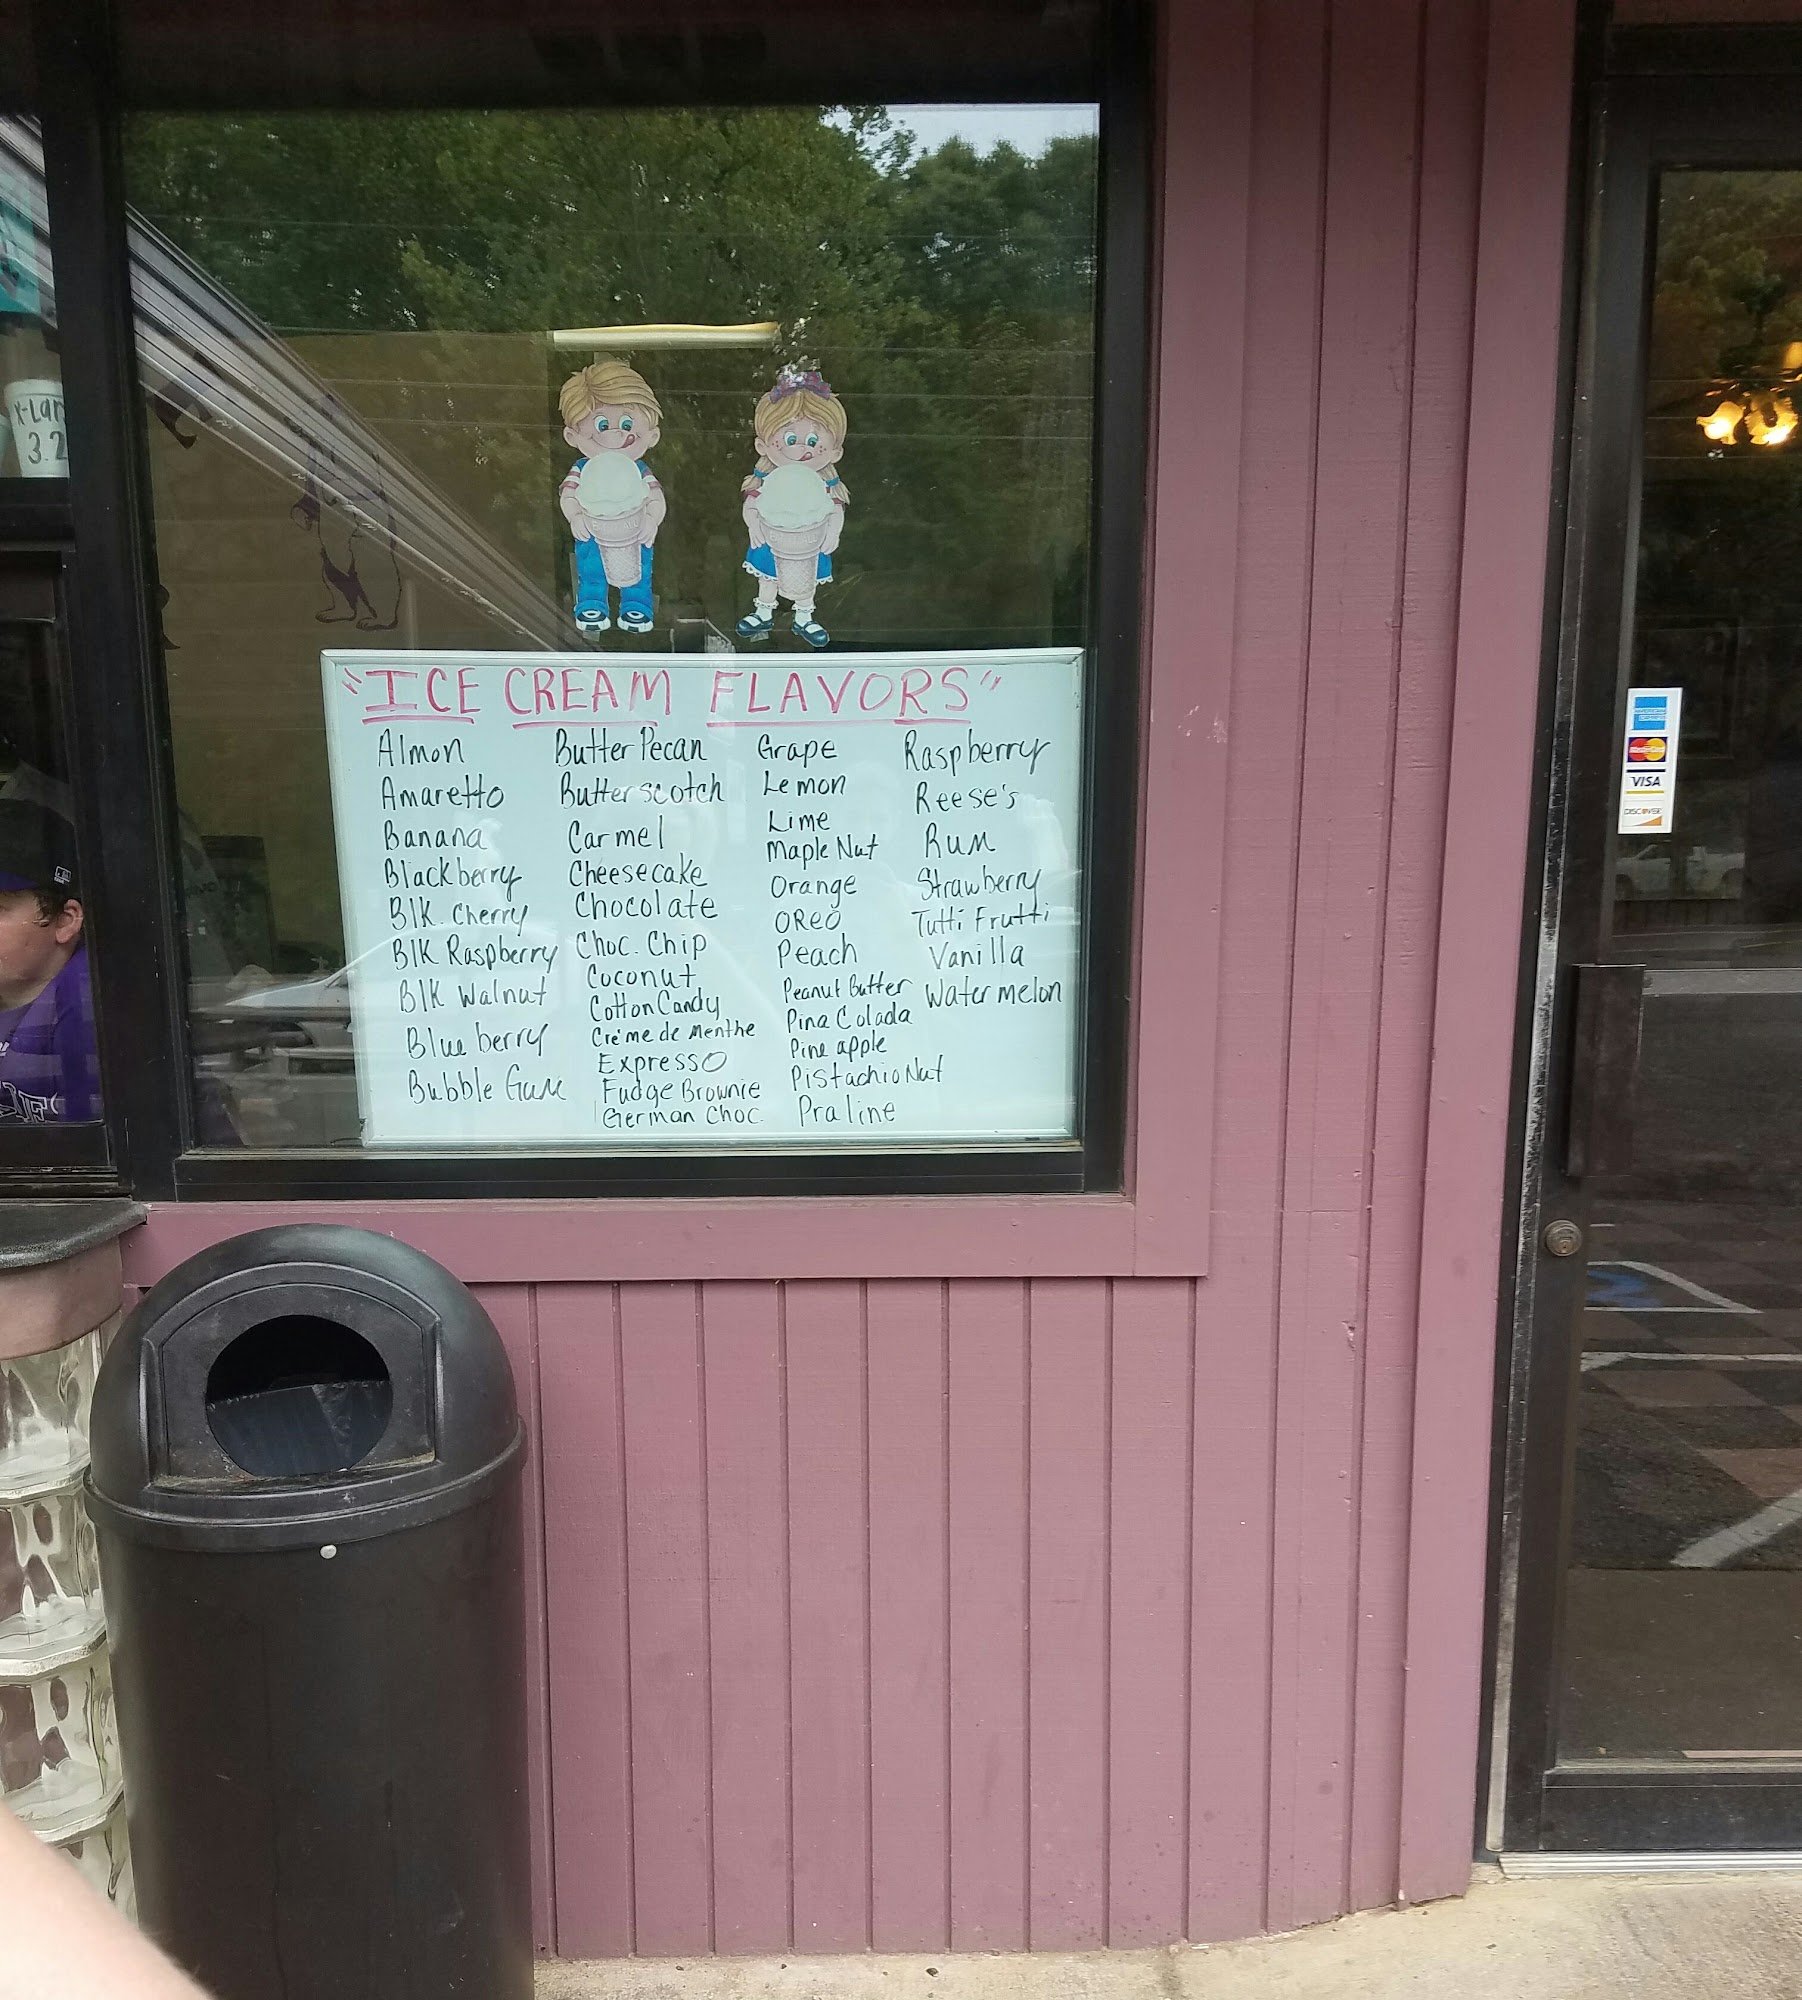 "ICE CREAM FLAVORS"
Almon
Amaretto
Banana
Blackberry
Blk. Cherry
Blk Raspberry
Blk Walnut
Blueberry
Bubble Gum
Butter Pecan
Butterscotch
Carmel
Cheesecake
Chocolate
Choc. Chip
Coconut
Cotton Candy
Créme de Menthe
Expresso
Fudge Brownie
German Choc.
Grape
Lemon
Lime
Maple Nut
Orange
OREO
Peach
Peanut Butter
Pina Colada
Pineapple
Pistachio Nut
Praline
Raspberry
Reese's
Rum
Strawberry
Tutti Frutti
Vanilla
Watermelon
AMERICAN EXPRESS
MasterCard
VISA
DISCOVER